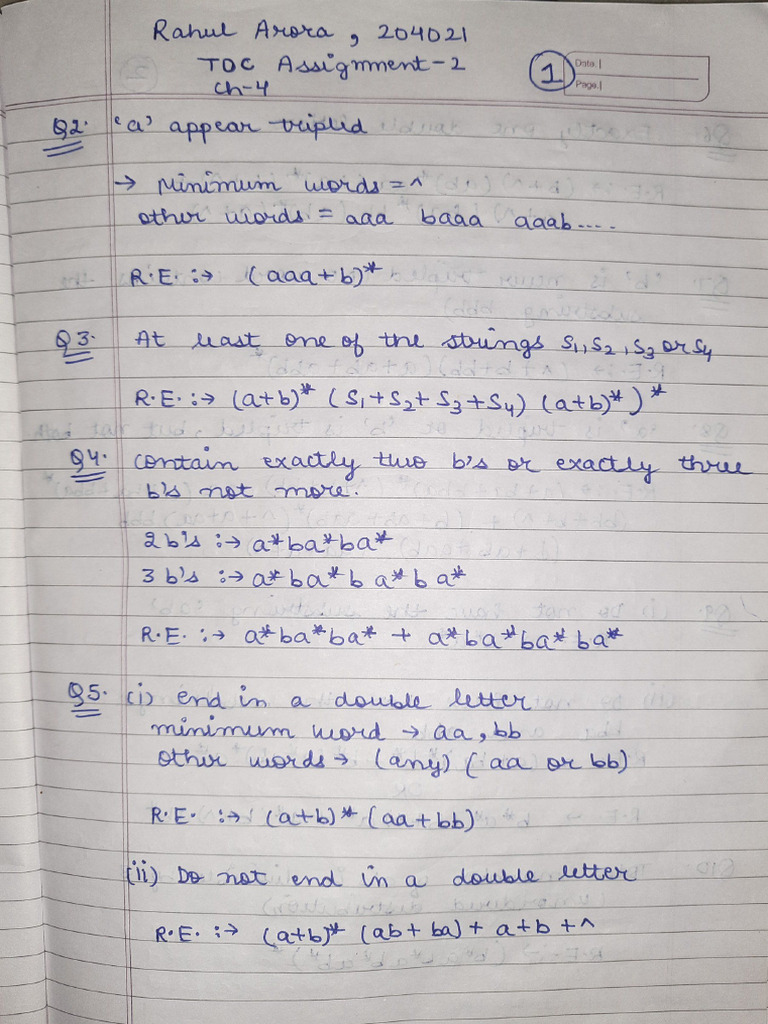 Rahul Arora, 204021
TOC Assignment-2
Ch-4
1
Date. |
Page. |
Q2. 'a' appear tripled
→ Minimum words = ^
other words = aaa baaa aaab....
R.E. :→ (aaa+b)*
Q3. At least one of the strings S1, S2, S3 or S4
R.E. :→ (a+b)* (S1+S2+S3+S4) (a+b)*)*
Q4. contain exactly two b's or exactly three
b's not more.
2 b's :→ a*ba*ba*
3 b's :→ a*ba*ba*ba*
R.E. :→ a*ba*ba* + a*ba*ba*ba*
Q5. (i) end in a double letter
minimum word → aa, bb
other words → (any) (aa or bb)
R.E. :→ (a+b)* (aa+bb)
(ii) Do not end in a double letter
R.E. :→ (a+b)* (ab+ba) + a+b+^